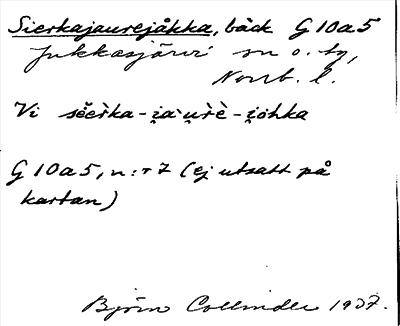 Sierkajaurejåkka, bäck G10a5
Jukkasjärvi sn o. by,
Norrb. l.
Vi sĕerka-i̯aurè-i̯ohka
G10a5, n:r 7 (ej utsatt på
kartan)
Björn Collinder 1937.